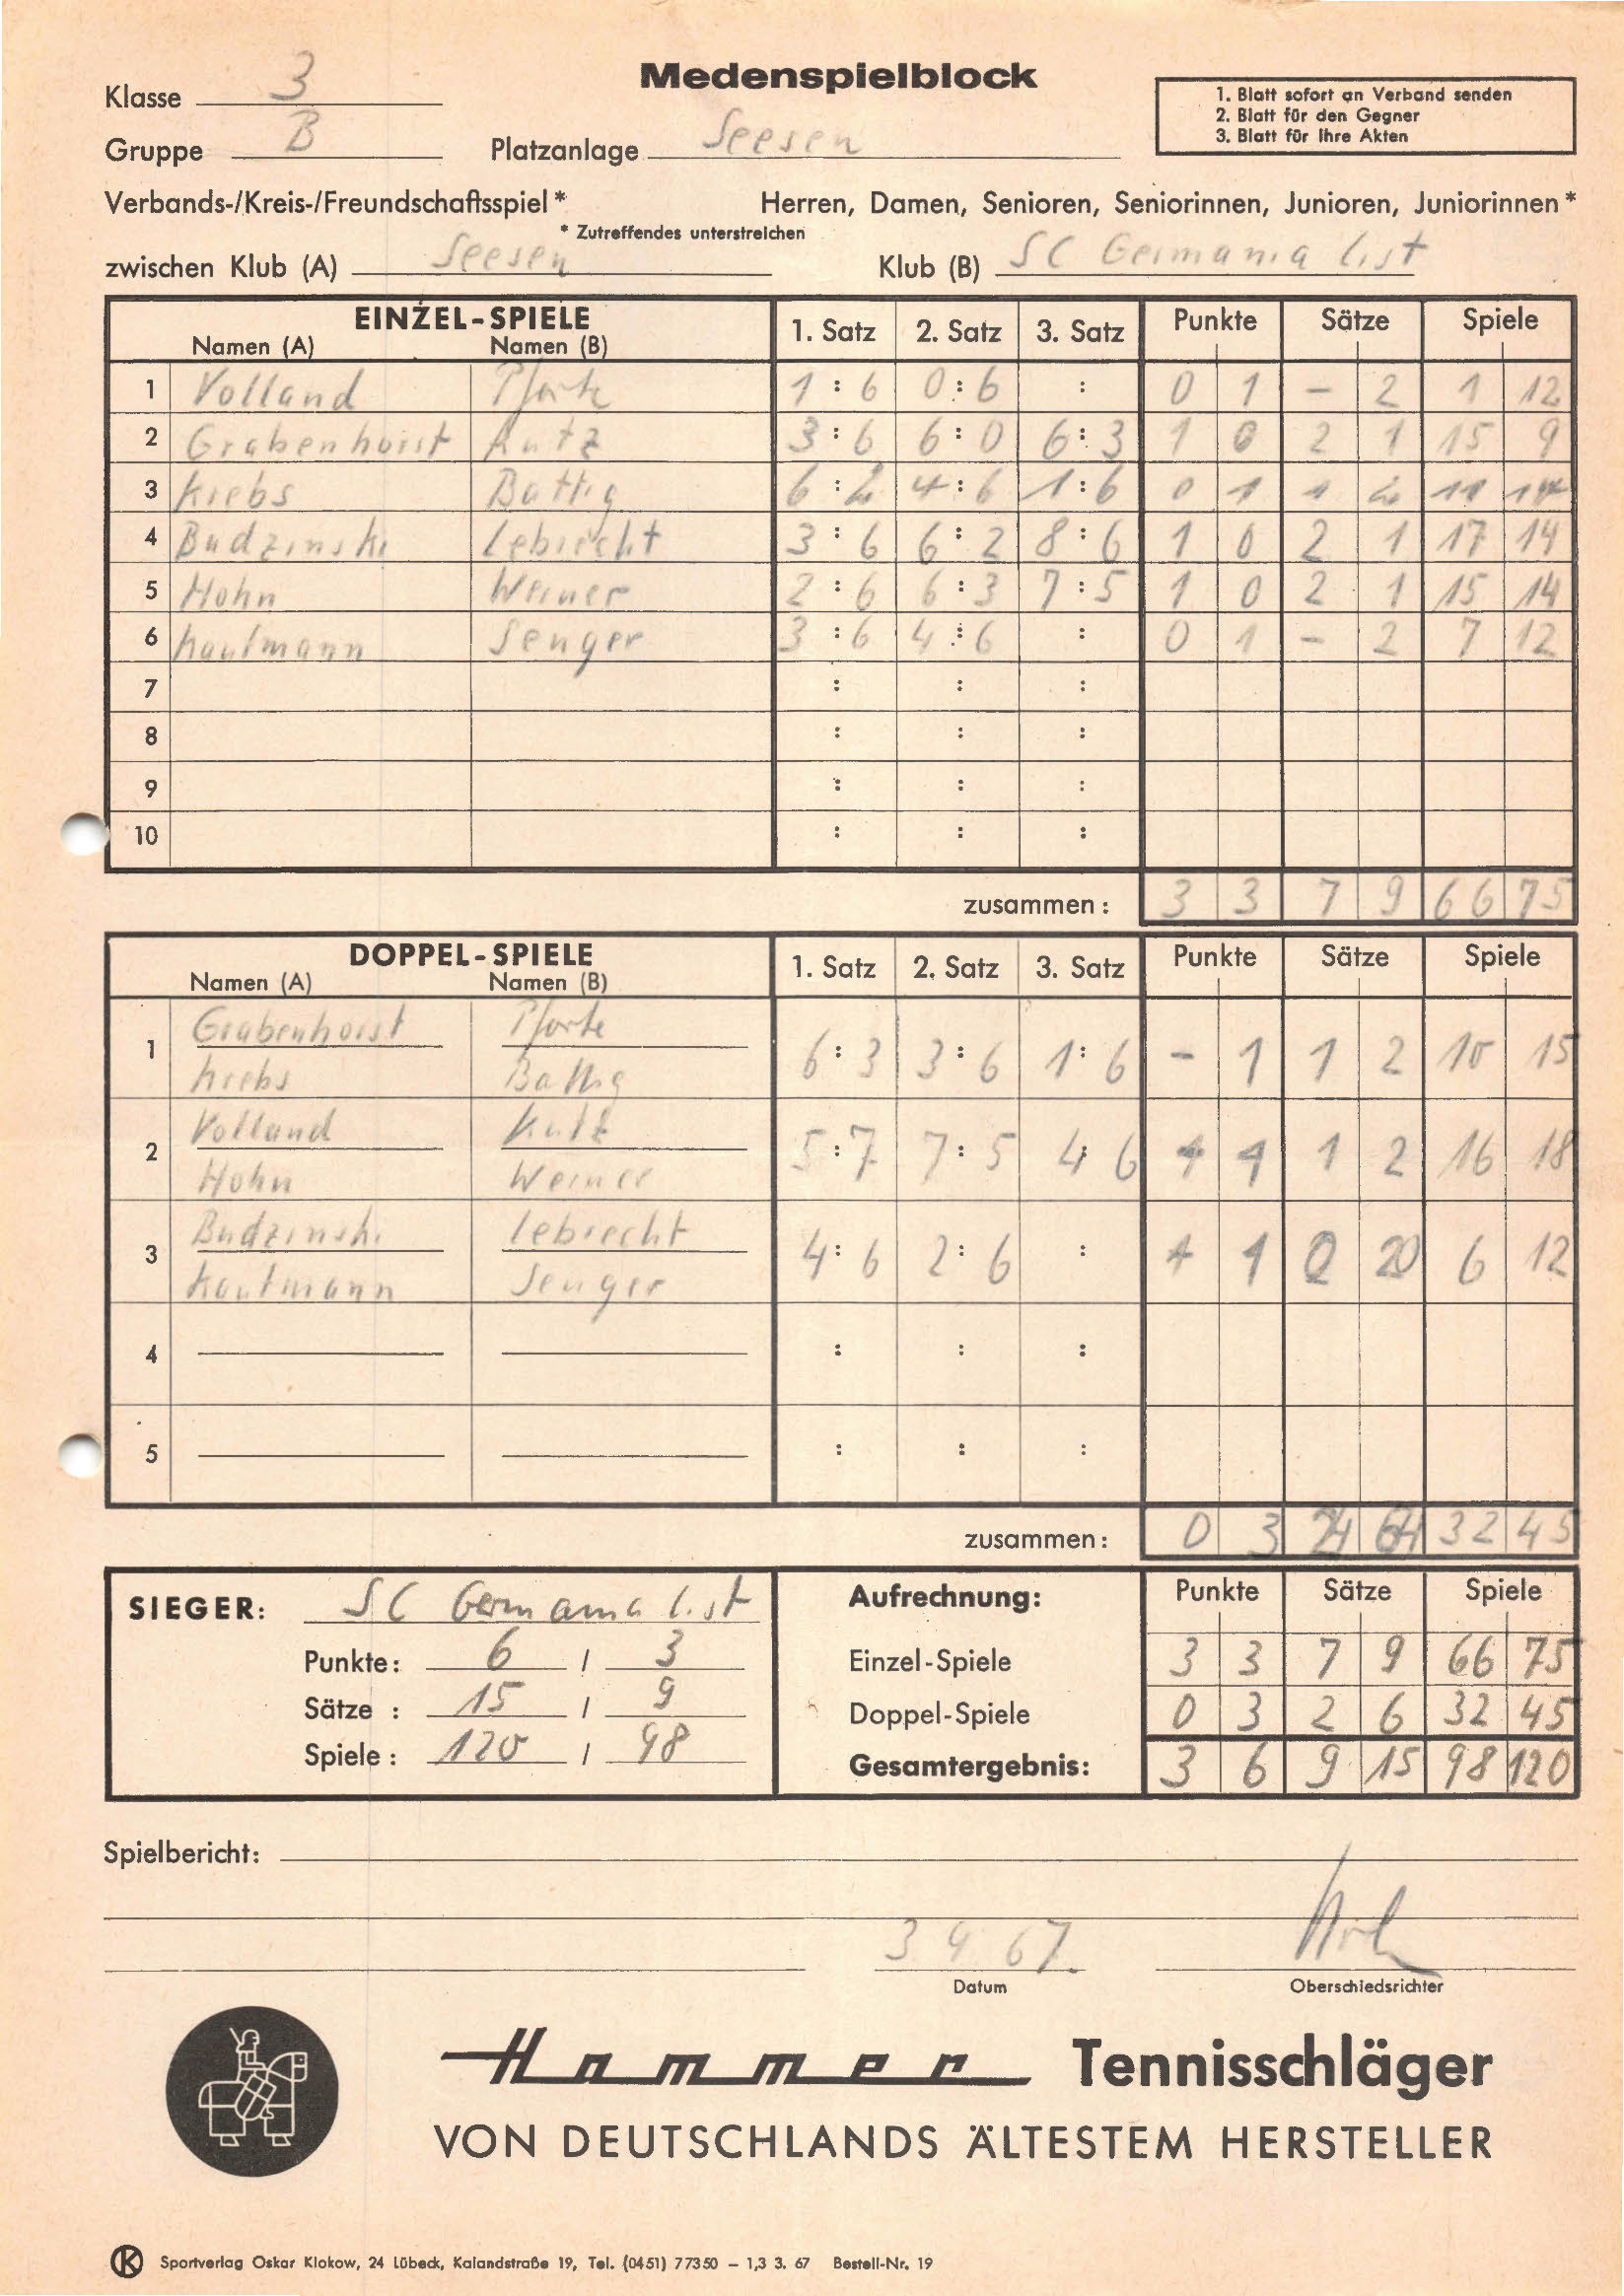 Medenspielblock
Klasse 3
Gruppe B Platzanlage Seesen
1. Blatt sofort an Verband senden
2. Blatt für den Gegner
3. Blatt für Ihre Akten
Verbands-/Kreis-/Freundschaftsspiel * Herren, Damen, Senioren, Seniorinnen, Junioren, Juniorinnen *
* Zutreffendes unterstreichen
zwischen Klub (A) Seesen Klub (B) SC Germania List
EINZEL-SPIELE 1. Satz 2. Satz 3. Satz Punkte Sätze Spiele
Namen (A) Namen (B)
1 Volland Pforte 1 : 6 0 : 6 : 0 1 - 2 1 12
2 Grabenhorst 3 : 6 6 : 0 6 : 3 1 0 2 1 15 9
3 Krebs Battig 6 : 2 4 : 6 1 : 6 0 1 1 2 11 14
4 Budzinski Lebrecht 3 : 6 6 : 2 8 : 6 1 0 2 1 17 14
5 Hohn Werner 2 : 6 6 : 3 7 : 5 1 0 2 1 15 14
6 Kaufmann Senger 3 : 6 4 : 6 : 0 1 - 2 7 12
7 : : :
8 : : :
9 : : :
10 : : :
zusammen : 3 3 7 9 66 75
DOPPEL-SPIELE 1. Satz 2. Satz 3. Satz Punkte Sätze Spiele
Namen (A) Namen (B)
Grabenhorst Pforte
1 6 : 3 3 : 6 1 : 6 - 1 1 2 10 15
Krebs Battig
Volland
2 5 : 7 7 : 5 4 : 6 1 1 2 16 18
Hohn Werner
Budzinski Lebrecht
3 4 : 6 2 : 6 : 1 0 2 6 12
Kaufmann Senger
4 : : :
5 : : :
zusammen : 0 3 2 6 32 45
SIEGER: SC Germania List Aufrechnung: Punkte Sätze Spiele
Punkte: 6 / 3 Einzel-Spiele 3 3 7 9 66 75
Sätze : 15 / 9 Doppel-Spiele 0 3 2 6 32 45
Spiele : 120 / 98 Gesamtergebnis: 3 6 9 15 98 120
Spielbericht:
3 9 67.
Datum Oberschiedsrichter
Hammer Tennisschläger
VON DEUTSCHLANDS ÄLTESTEM HERSTELLER
K Sportverlag Oskar Klokow, 24 Lübeck, Kalandstraße 19, Tel. (0451) 77350 – 1,3 3. 67 Bestell-Nr. 19